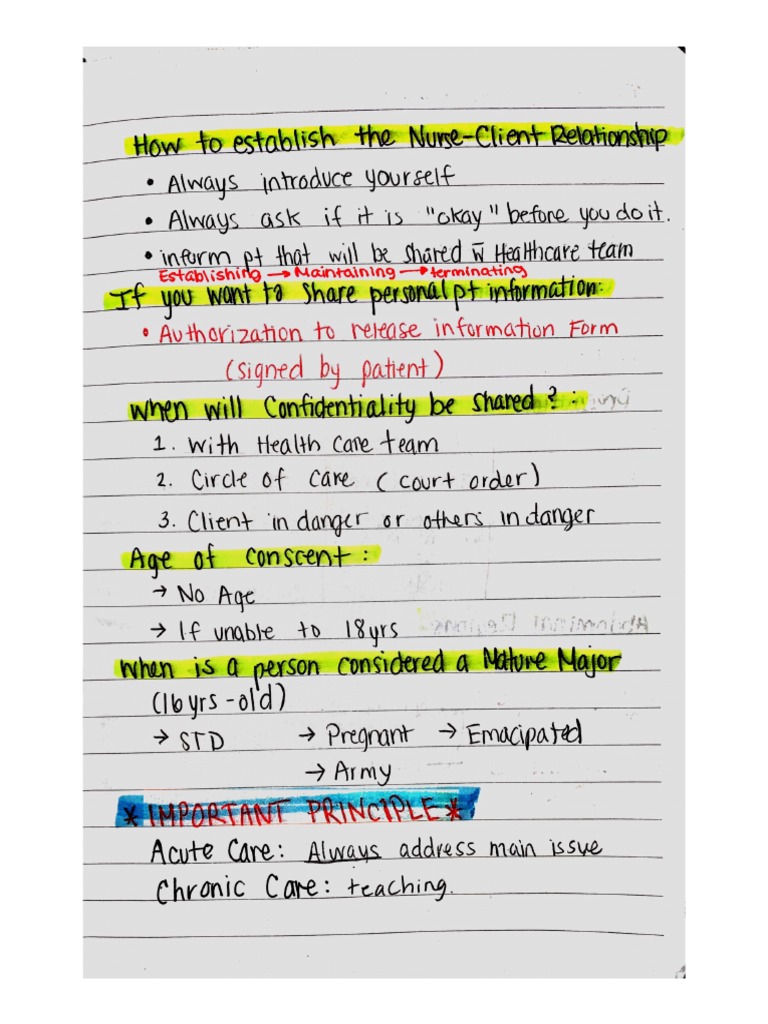 How to establish the Nurse-Client Relationship
• Always introduce yourself
• Always ask if it is "okay" before you do it.
• inform pt that will be shared w̄ Healthcare team
Establishing → Maintaining → terminating
If you want to share personal pt information:
• Authorization to release information Form
(signed by patient)
When will Confidentiality be shared?:
1. With Health Care team
2. Circle of Care (court order)
3. Client in danger or others in danger
Age of Conscent:
→ No Age
→ If unable to 18yrs
When is a person considered a Mature Major
(16yrs-old)
→ STD → Pregnant → Emacipated
→ Army
*IMPORTANT PRINCIPLE*
Acute Care: Always address main issue
Chronic Care: teaching.